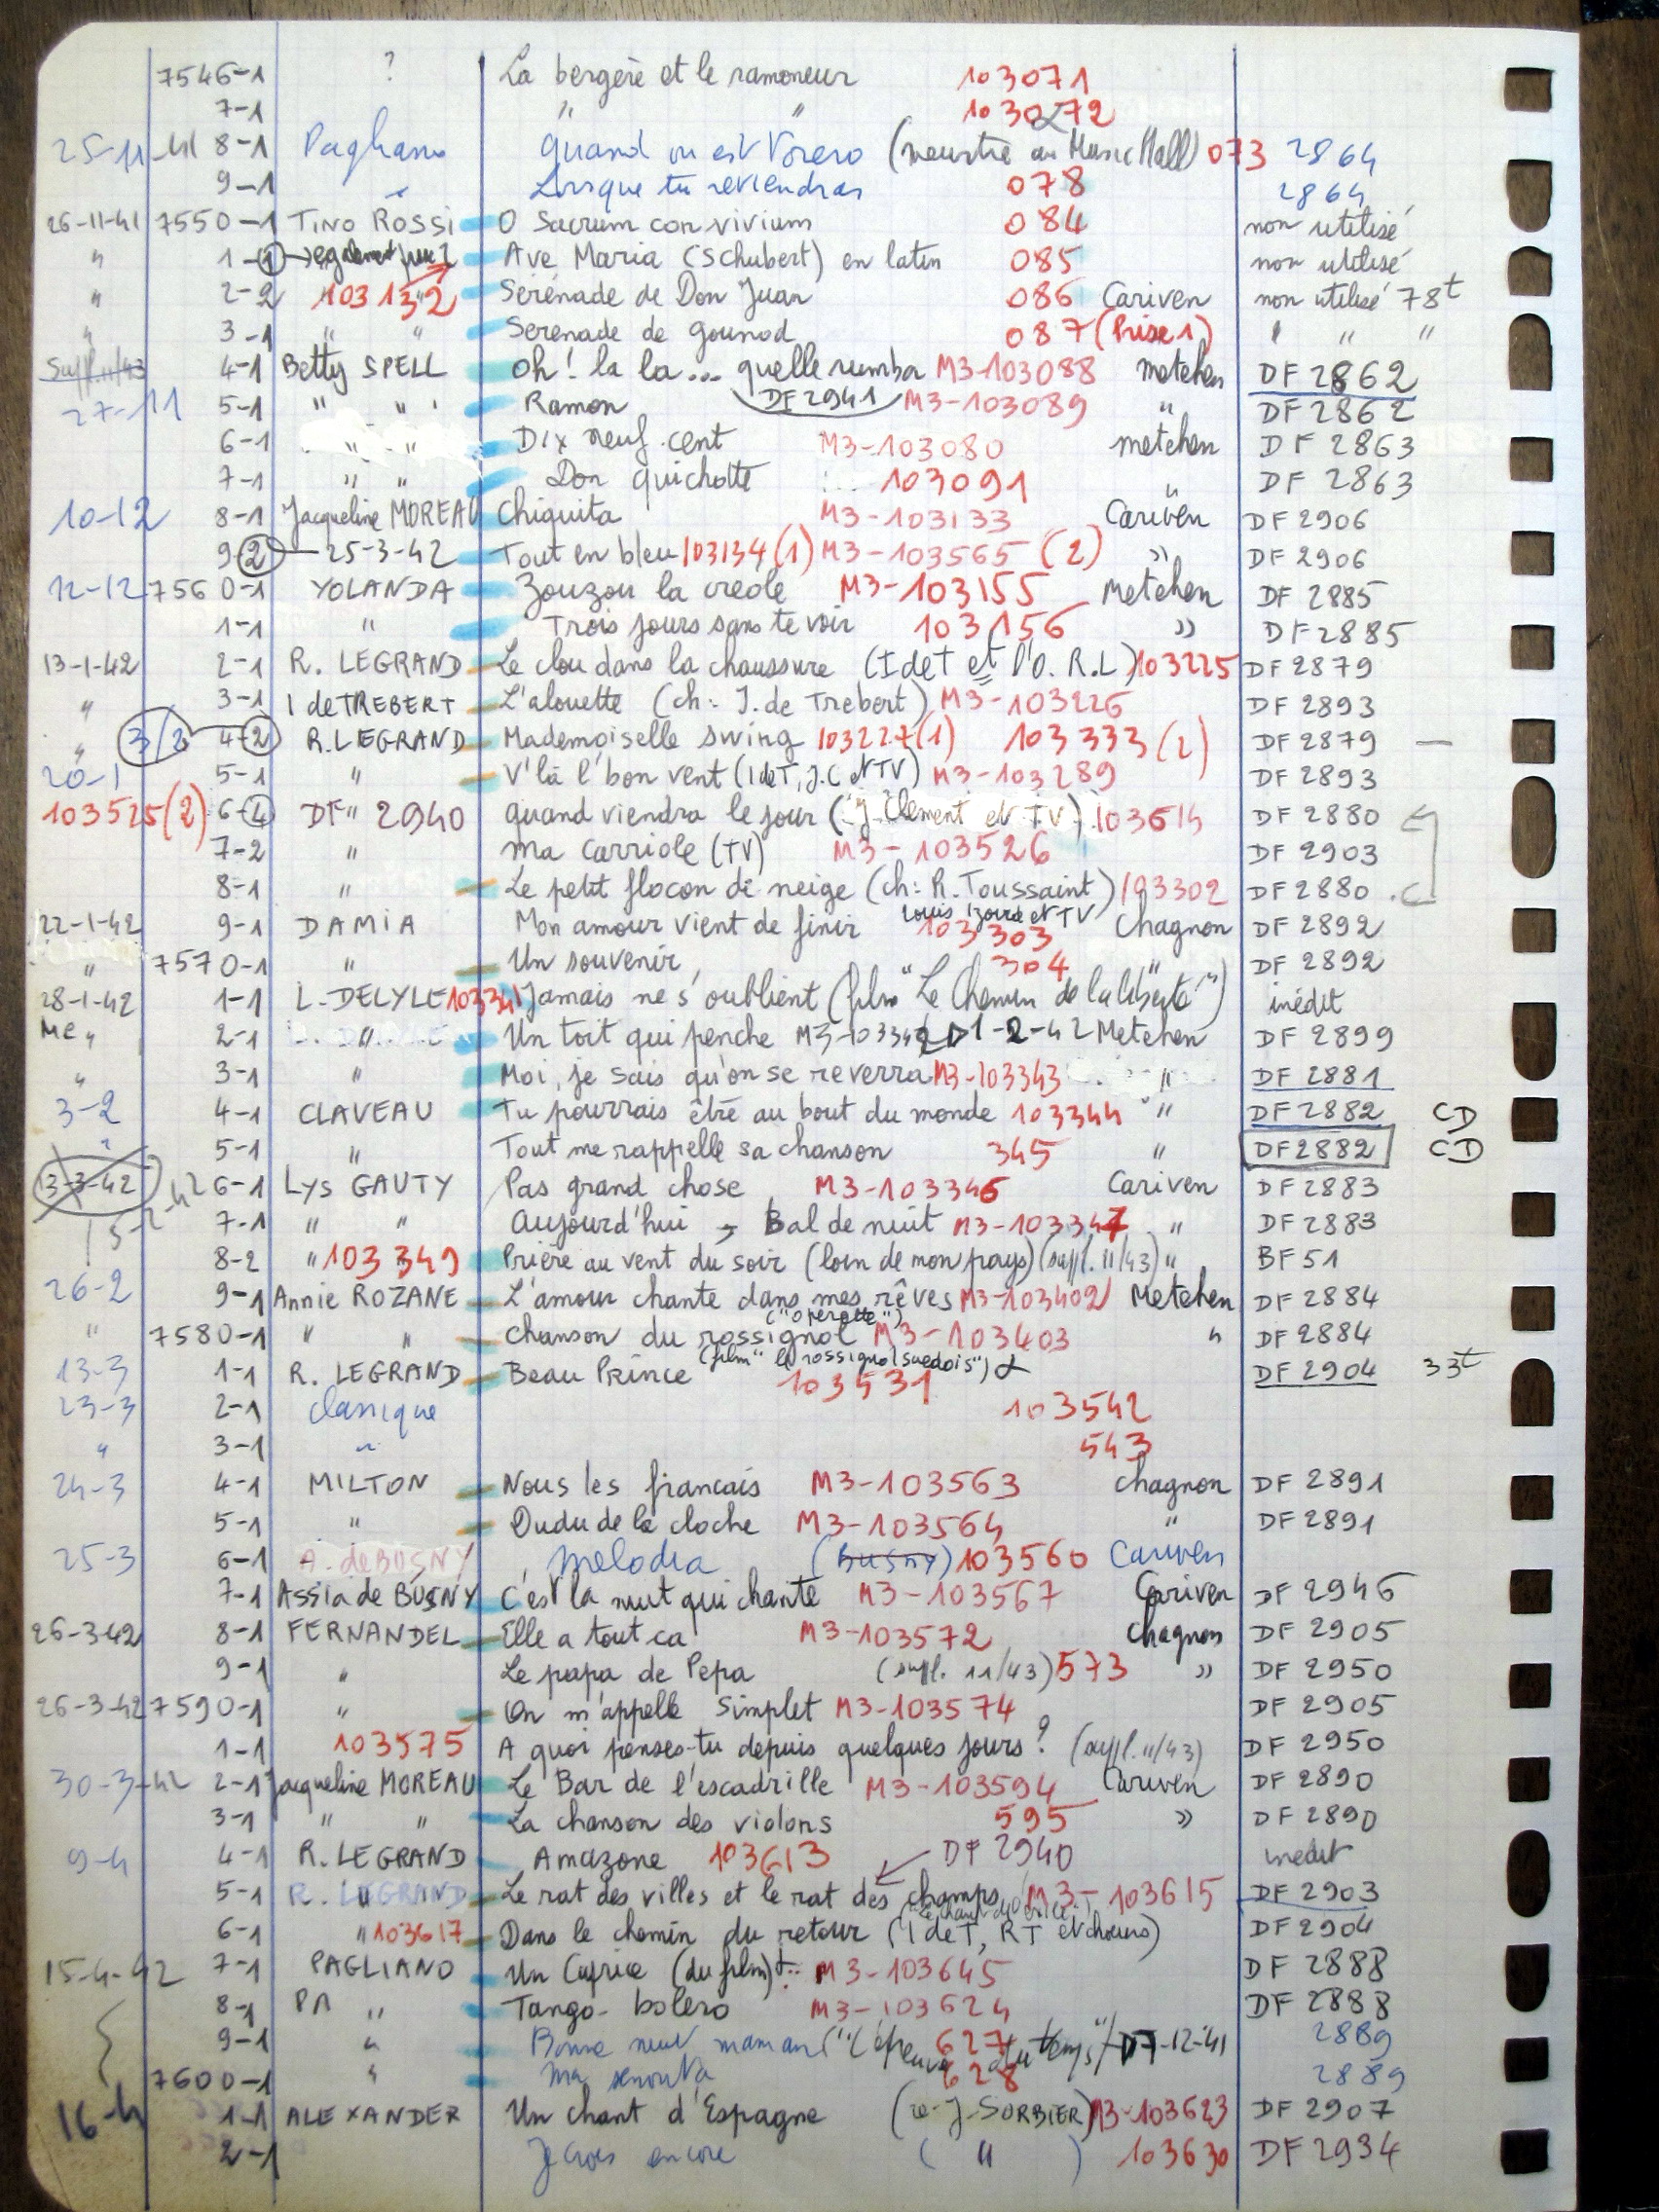 7546-1 ? La bergère et le ramoneur 103071
7-1 " " 103072
25-11-41 8-1 Pagliano Quand on est Torero (meurtre au Music Hall) 073 2864
9-1 " Lorsque tu reviendras 078 2864
26-11-41 7550-1 TINO ROSSI O Sacrum convivium 084 non utilisé
" 1-1 → également prise 2 Ave Maria (Schubert) en latin 085 non utilisé
" 2-2 103132 Sérénade de Don Juan 086 Cariven non utilisé 78t
" 3-1 " " Serenade de gounod 087 (Prise 1) " " "
Suppl. 11/43 4-1 Betty SPELL Oh! la la... quelle rumba M3-103088 metehen DF 2862
27-11 5-1 " " Ramon DF 2941 M3-103089 " DF 2862
6-1 " " Dix neuf cent M3-103080 metehen DF 2863
7-1 " " Don quichotte 103091 " DF 2863
10-12 8-1 Jacqueline MOREAU Chiquita M3-103133 Cariven DF 2906
9-2 — 25-3-42 Tout en bleu 103134 (1) M3-103565 (2) " DF 2906
12-12 7560-1 YOLANDA Zouzou la creole M3-103155 Metehen DF 2885
1-1 " Trois jours sans te voir 103156 " DF 2885
13-1-42 2-1 R. LEGRAND Le clou dans la chaussure (I de T et l'O.R.L) 103225 DF 2879
" 3-1 I de TREBERT L'alouette (ch: I. de Trebert) M3-103226 DF 2893
" 3/2 4-2 R. LEGRAND Mademoiselle swing 103227 (1) 103333 (2) DF 2879 —
20-1 5-1 " V'là l'bon vent (I de T, J.C et TV) M3-103289 DF 2893
103525 (2) 6-4 DF " 2940 quand viendra le jour (J. Clement et TV) 103614 DF 2880
7-2 " ma carriole (TV) M3-103526 DF 2903
8-1 " Le petit flocon de neige (ch: R. Toussaint) 103302 DF 2880
Louis Izoird et TV
22-1-42 9-1 DAMIA Mon amour vient de finir 103303 Chagnon DF 2892
" 7570-1 " Un souvenir 304 " DF 2892
28-1-42 1-1 L. DELYLE 103341 Jamais ne s'oublient (film "Le Chemin de la liberté") inédit
Me " 2-1 " Un toit qui penche M3-103342 D1-2-42 Metehen DF 2899
" 3-1 " Moi, je sais qu'on se reverra M3-103343 " DF 2881
3-2 4-1 CLAVEAU Tu pourrais être au bout du monde 103344 " DF 2882 CD
" 5-1 " Tout me rappelle sa chanson 345 " DF 2882 CD
13-3-42 6-1 Lys GAUTY Pas grand chose M3-103346 Cariven DF 2883
15-2-42 7-1 " " Aujourd'hui Bal de nuit M3-103347 " DF 2883
8-2 " 103349 Prière au vent du soir (loin de mon pays) (suppl. 11/43) " BF 51
26-2 9-1 Annie ROZANE L'amour chante dans mes rêves M3-103402 Metehen DF 2884
("Operette")
" 7580-1 " " chanson du rossignol M3-103403 " DF 2884
(film "le rossignol suedois")
13-3 1-1 R. LEGRAND Beau Prince 103531 DF 2904 33t
23-3 2-1 classique 103542
" 3-1 " 543
24-3 4-1 MILTON Nous les francais M3-103563 chagnon DF 2891
5-1 " Dudu de la cloche M3-103564 " DF 2891
25-3 6-1 A. de BUSNY melodia (BUSNY) 103560 Cariven
7-1 Assia de BUSNY C'est la nuit qui chante M3-103567 Cariven DF 2946
26-3-42 8-1 FERNANDEL Elle a tout ca M3-103572 chagnon DF 2905
9-1 " Le papa de Pepa (suppl. 11/43) 573 " DF 2950
26-3-42 7590-1 " On m'appelle Simplet M3-103574 DF 2905
1-1 103575 A quoi penses-tu depuis quelques jours? (suppl. 11/43) DF 2950
30-3-42 2-1 Jacqueline MOREAU Le Bar de l'escadrille M3-103594 Cariven DF 2890
3-1 " " La chanson des violons 595 " DF 2890
9-4 4-1 R. LEGRAND Amazone 103613 DF 2940 inédit
5-1 R. LEGRAND Le rat des villes et le rat des champs M3-103615 DF 2903
6-1 " 103617 Dans le chemin du retour (I de T, RT et choeurs) DF 2904
15-4-42 7-1 PAGLIANO Un Caprice (du film) M3-103645 DF 2888
8-1 PA " Tango-bolero M3-103624 DF 2888
9-1 " Bonne nuit maman ("L'épreuve du temps") D7-12-41 627 2889
7600-1 " Ma senorita 628 2889
16-4 1-1 ALEXANDER Un chant d'Espagne (re-J-SORBIER) M3-103623 DF 2907
2-1 Je crois encore ( " ) 103630 DF 2934